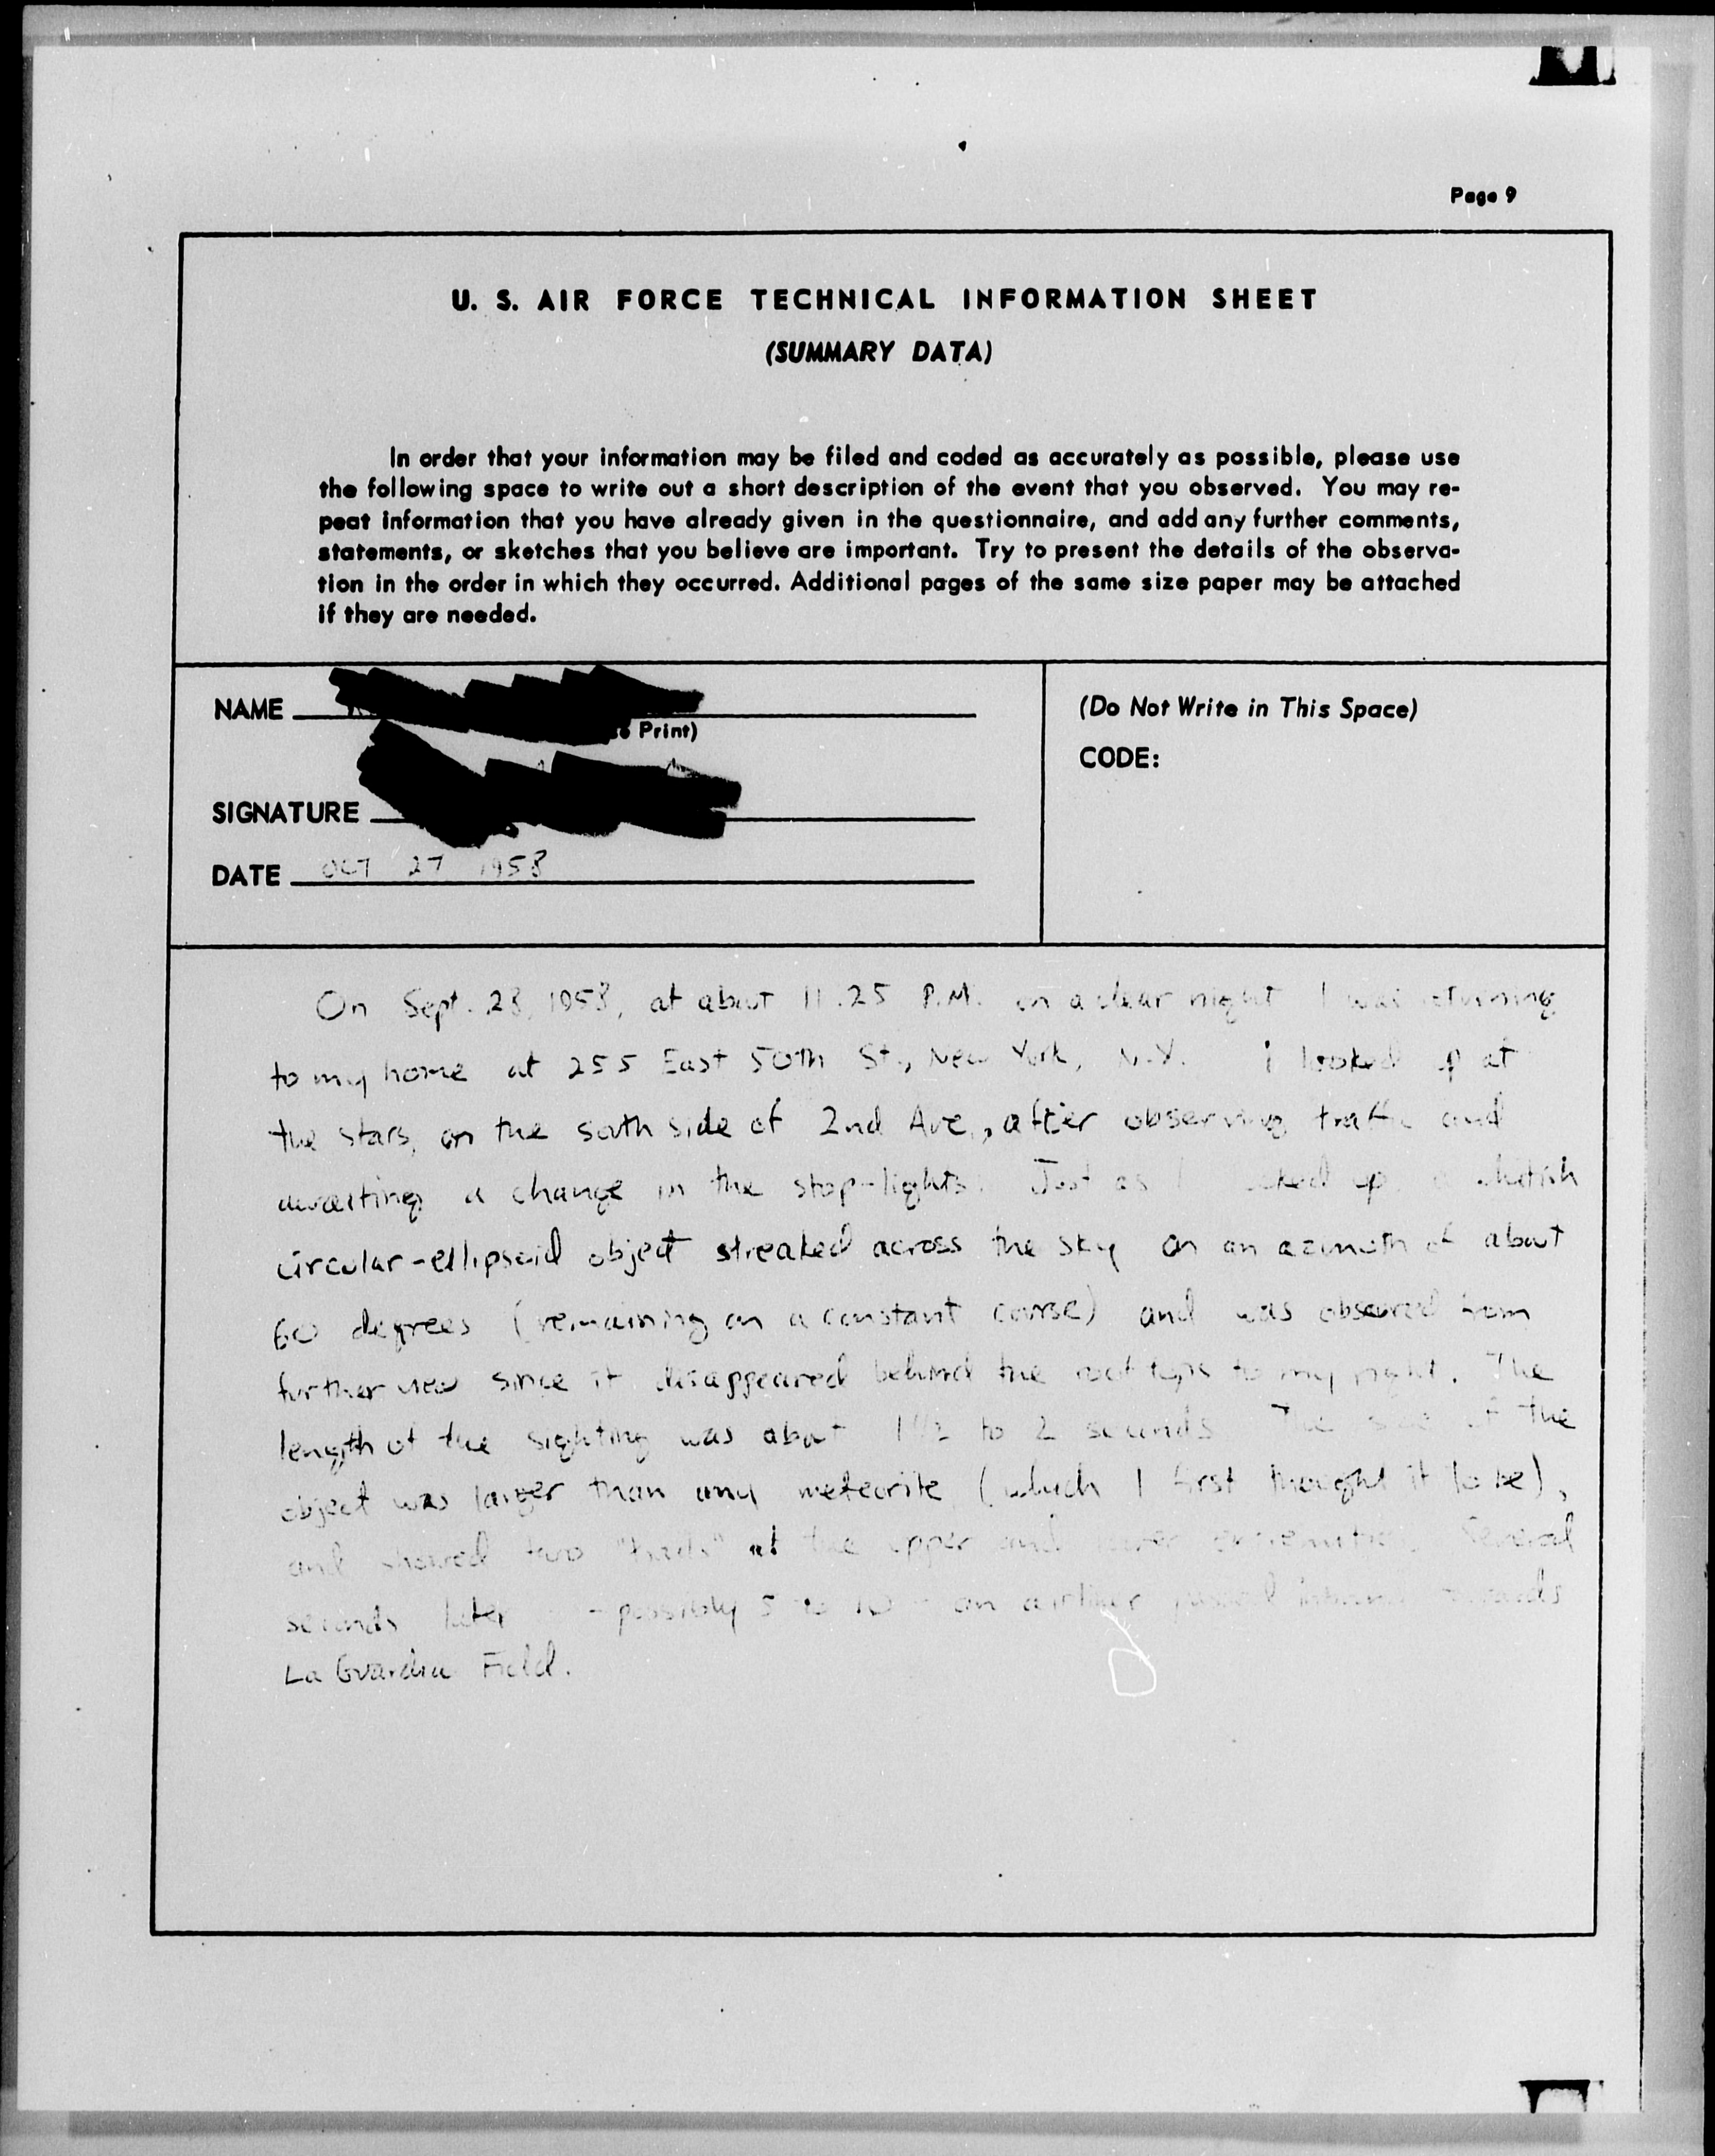 Page 9
U. S. AIR FORCE TECHNICAL INFORMATION SHEET
(SUMMARY DATA)
In order that your information may be filed and coded as accurately as possible, please use
the following space to write out a short description of the event that you observed. You may re-
peat information that you have already given in the questionnaire, and add any further comments,
statements, or sketches that you believe are important. Try to present the details of the observa-
tion in the order in which they occurred. Additional pages of the same size paper may be attached
if they are needed.
NAME
Print)
SIGNATURE
DATE OCT 27 1958
(Do Not Write in This Space)
CODE:
On Sept. 28, 1958, at about 11.25 P.M. on a clear night I was returning
to my home at 255 East 50th St., New York, N.Y. I looked up at
the stars, on the south side of 2nd Ave., after observing traffic and
awaiting a change in the stop-lights. Just as I looked up, a whitish
circular-ellipsoid object streaked across the sky on an azimuth of about
60 degrees (remaining on a constant course) and was obscured from
further view since it disappeared behind the roof tops to my right. The
length of the sighting was about 1 1/2 to 2 seconds. The size of the
object was larger than any meteorite (which I first thought it to be),
and showed two "trails" at the upper and lower extremities. Several
seconds later - possibly 5 to 10 - an airliner passed inbound towards
La Guardia Field.